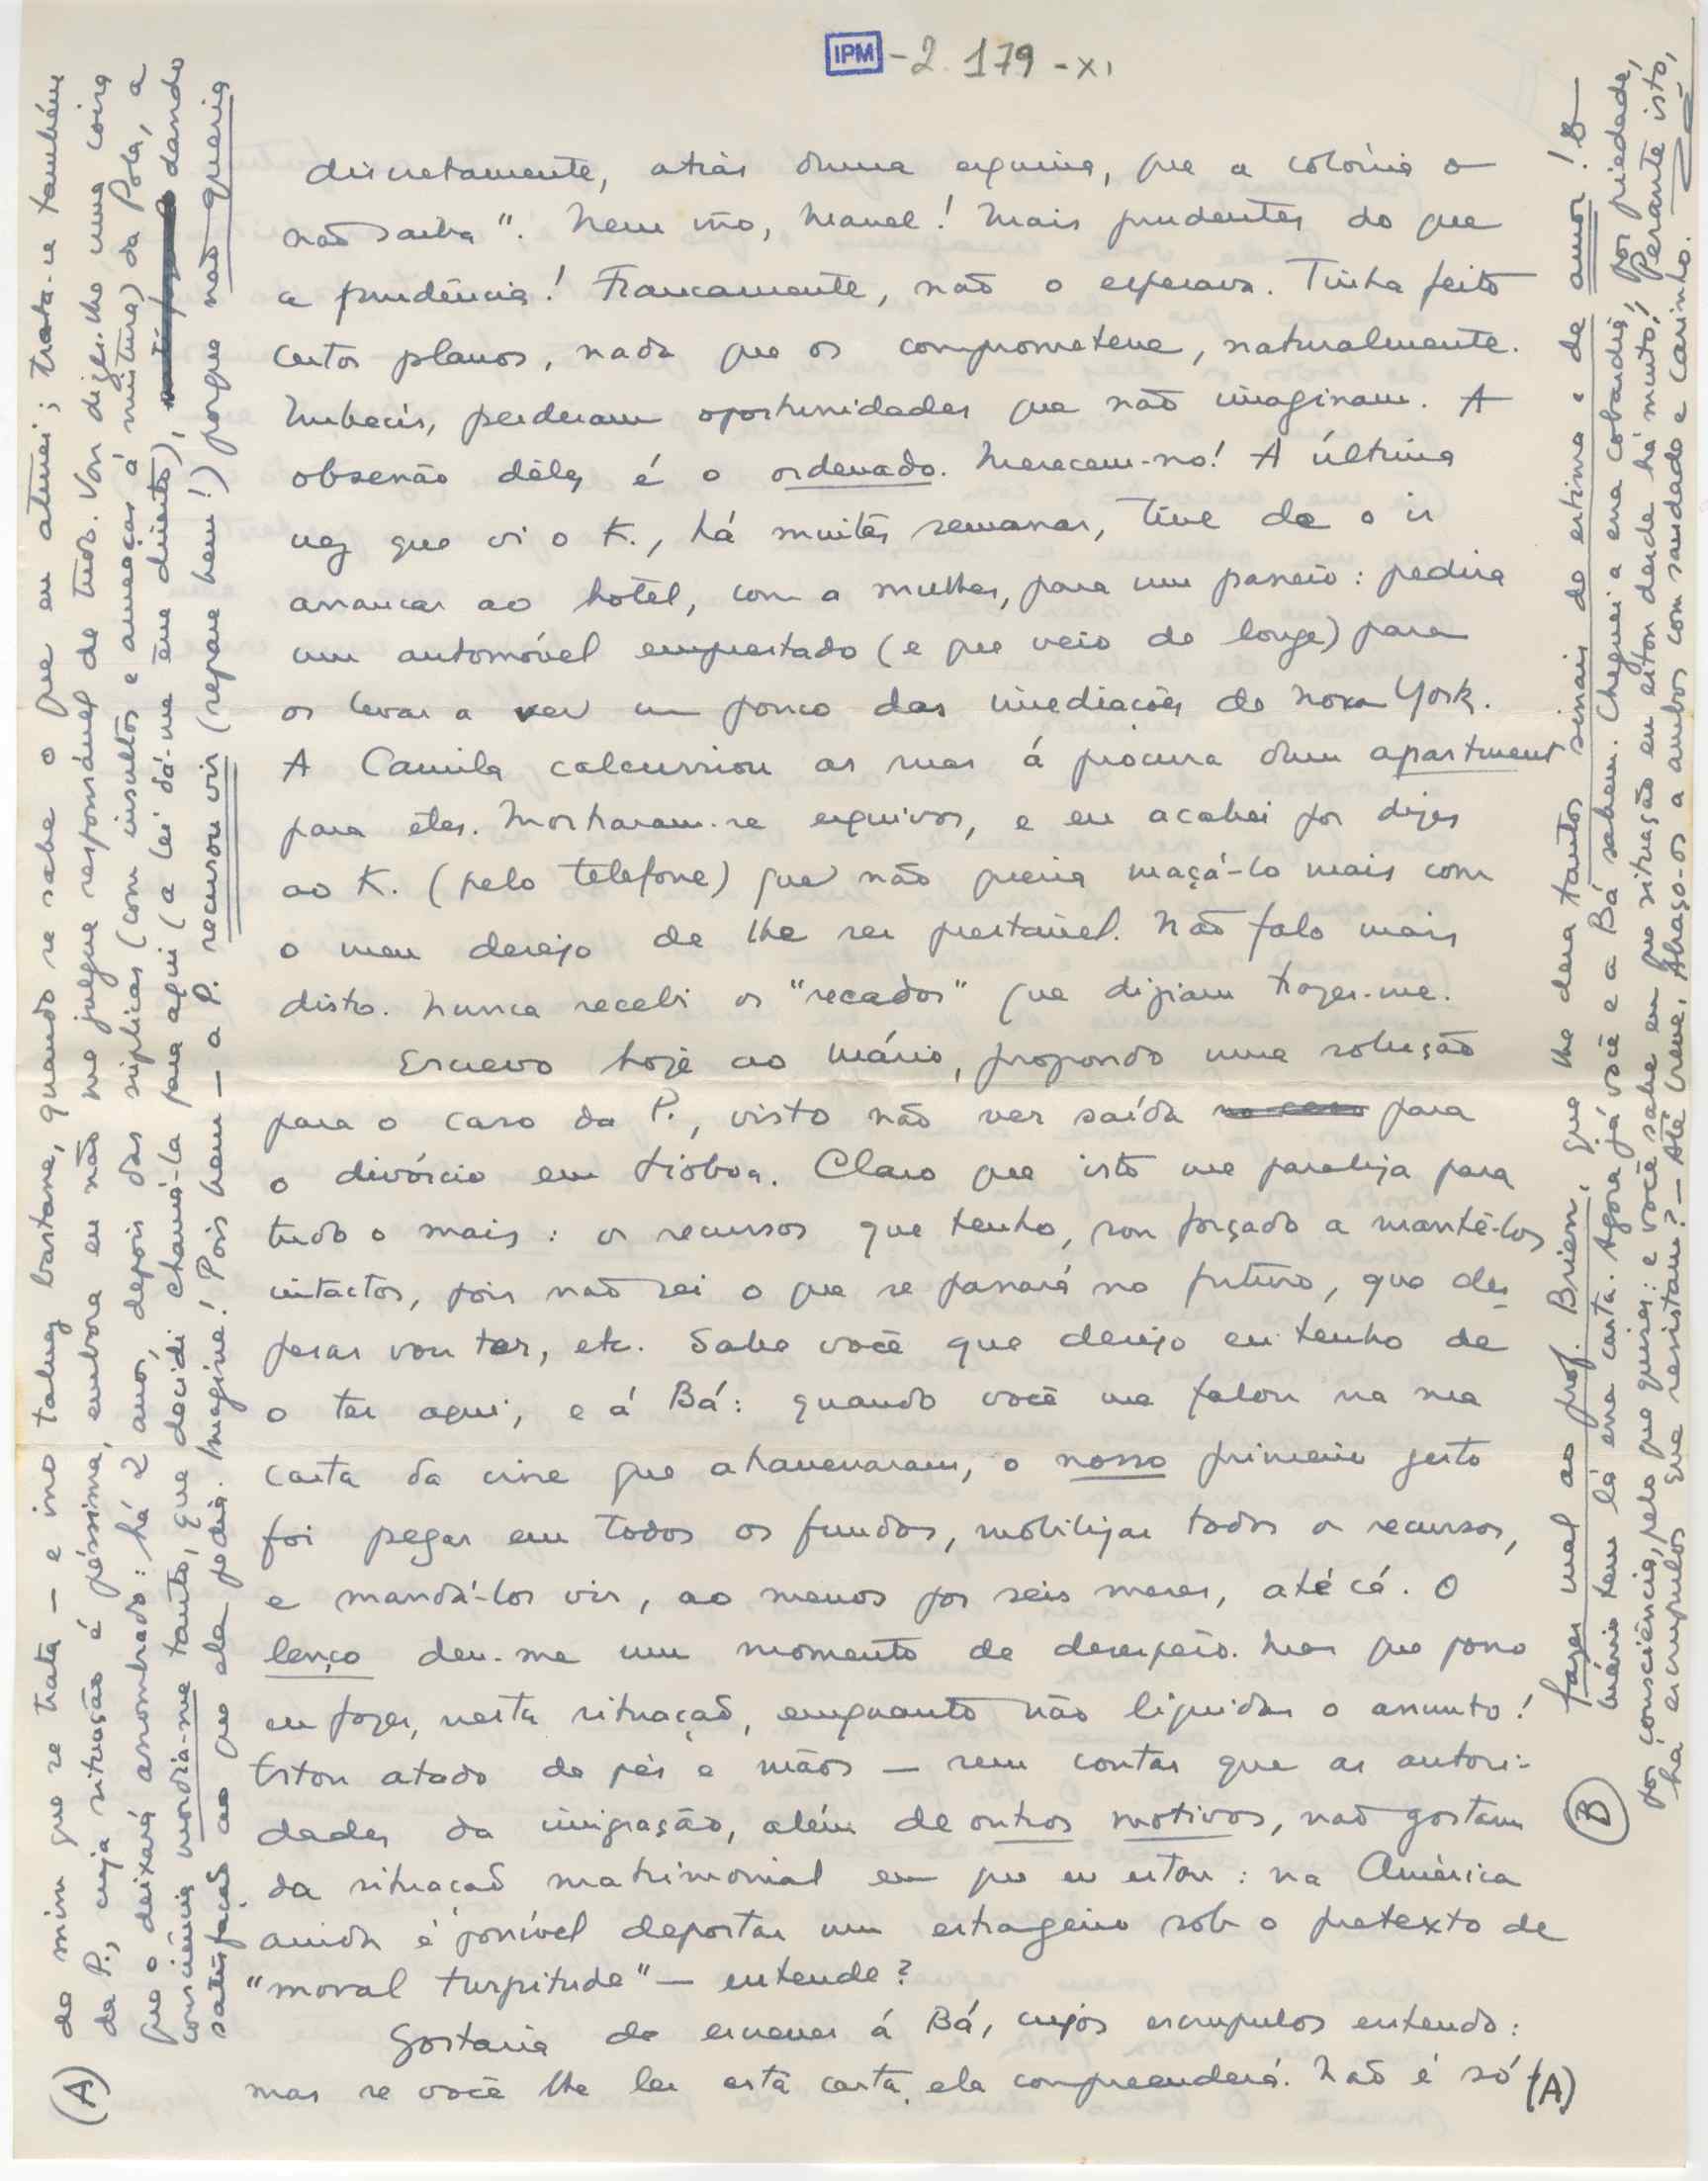 IPM - 2.179 - XI
discretamente, atrás duma esquina, que a colónia o
não saiba". Nem isso, Manel! Mais prudentes do que
a prudência! Francamente, não o esperava. Tinha feito
certos planos, nada que os comprometesse, naturalmente.
Imbecis, perderam oportunidades que não imaginam. A
obsessão dêles é o ordenado. Merecem-no! A última
vez que vi o K., há muitas semanas, tive de o ir
arrancar ao hotel, com a mulher, para um passeio: pedira
um automóvel emprestado (e que veio de longe) para
os levar a ver um pouco das imediações de Nova York.
A Camila calcurriou as ruas á procura dum apartment
para eles. Mostraram-se esquivos, e eu acabei por dizer
ao K. (pelo telefone) que não queria maçá-lo mais com
o meu desejo de lhe ser prestável. Não falo mais
disto. Nunca recebi os "recados" que diziam trazer-me.
Escrevo hoje ao Mário, propondo uma solução
para o caso da P., visto não ver saída no caso para
o divórcio em Lisboa. Claro que isto me paraliza para
tudo o mais: os recursos que tenho, sou forçado a mantê-los
intactos, pois não sei o que se passará no futuro, que des
pesas vou ter, etc. Sabe você que desejo eu tenho de
o ter aqui, e á Bá: quando você me falou na sua
carta da crise que atravessaram, o nosso primeiro gesto
foi pegar em todos os fundos, mobilizar todos os recursos,
e mandá-los vir, ao menos por seis meses, até cá. O
lenço deu-me um momento de desespêro. Mas que posso
eu fazer, nesta situação, emquanto não liquidar o assunto!
Estou atado de pés e mãos — sem contar que as autori-
dades da imigração, além de outros motivos, não gostam
da situação matrimonial em que eu estou: na América
ainda é possível deportar um estrageiro sob o pretexto de
"moral turpitude" — entende?
Gostaria de escrever á Bá, cujos escrupulos entendo:
mas se você lhe ler esta carta, ela compreenderá. Não é só (A)
(A) de mim que se trata — e isso talvez bastasse, quando se sabe o que eu aturei; trata-se também
da P., cuja situação é péssima, embora eu não me julgue responsável de tudo. Vou dizer-lhe uma coisa
que o deixará assombrado: há 2 anos, depois das súplicas (com insultos e ameaças á mistura) da Pola, a
consciência mordia-me tanto, que decidi chamá-la para aqui (a lei dá-me êsse direito), dando
satisfação ao que ela pedia. Imagine! Pois bem — a P. recusou vir (repare bem!) porque não queria
(B) fazer mal ao prof. Brien, que lhe dera tantos sinais de estima e de amor! B —
Mário tem lá essa carta. Agora já você e a Bá sabem. Cheguei a essa cobardia, por piedade,
por consciência, pelo que quiser: e você sabe em que situação eu estou desde há muito! Perante isto,
há escrupulos que resistam? — Até breve. Abraço-os a ambos com saudade e carinho.